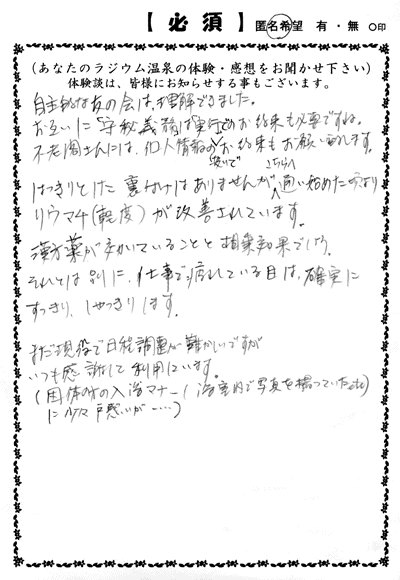 【必須】 匿名希望 有・無 ○印
(あなたのラジウム温泉の体験・感想をお聞かせ下さい)
体験談は、皆様にお知らせする事もございます。
自主的な友の会は、理解できました。
お互いに「守秘義務は実行」のお約束も必要ですね。
不老閣さんには、個人情報のお約束もお願い致します。
扱いで こちらへ
はっきりとした裏付けはありませんが、通い始めた頃より
リウマチ(軽度)が改善されています。
漢方薬が効いていることと相乗効果でしょう。
それとは別に、仕事で疲れている日は、確実に
すっきり、しゃっきりします。
まだ現役で日程調整が難かしいですが
いつも感謝して利用しています。
(団体の方の入浴マナー(浴室内で写真を撮っていたetc)
に少々戸惑いが……)